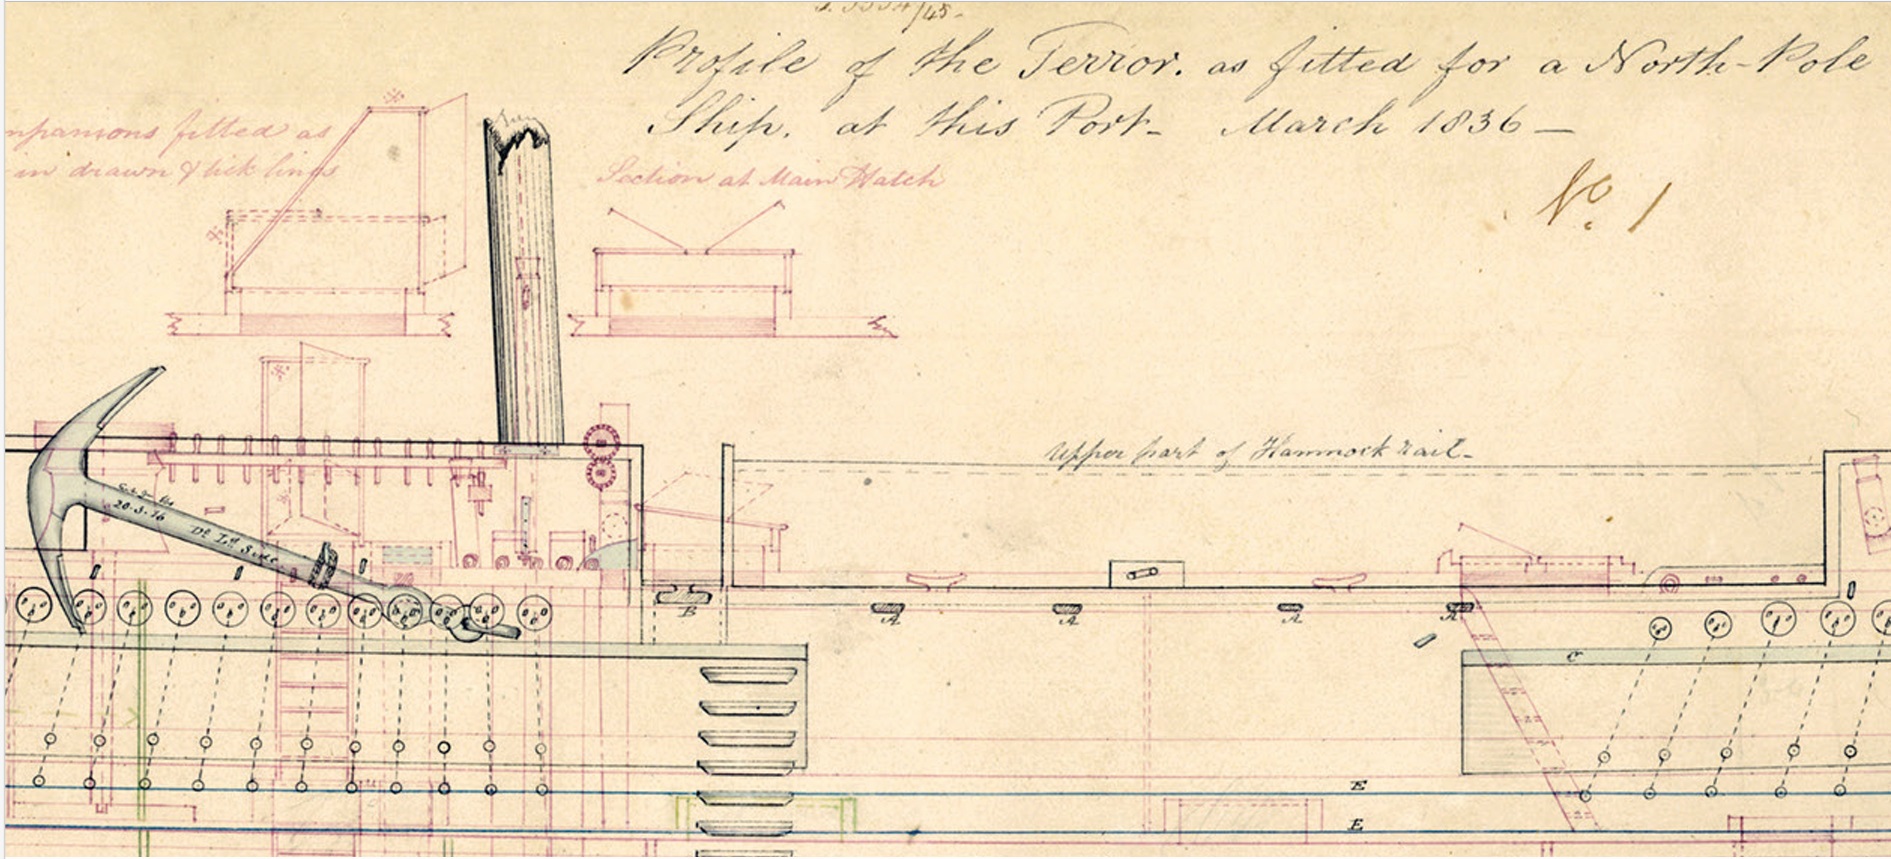 Profile of the Terror. as fitted for a North-Pole
Ship. at this Port- March 1836 —
No. 1
fitted as
in drawn & tick lines
Section at Main Hatch
Upper part of Hammock rail-
20-3-16
B
A
A
A
A
C
E
E